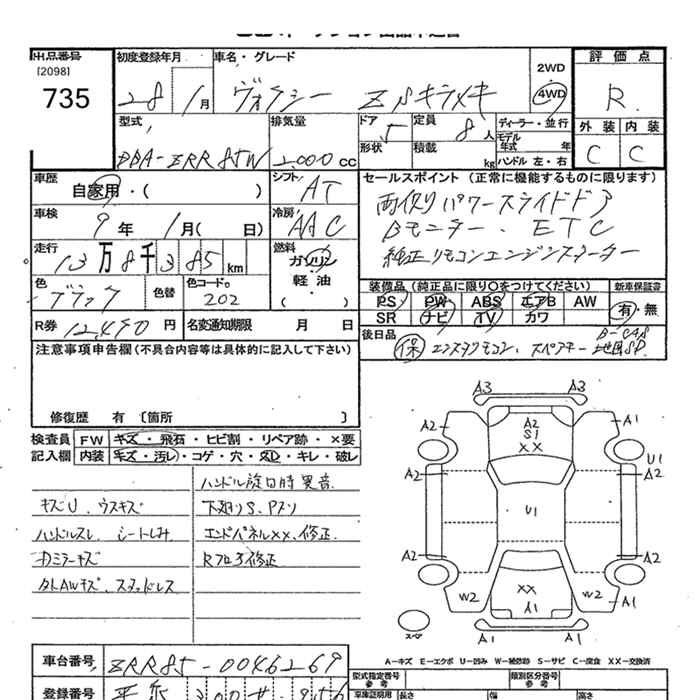 出品番号
[2098]
735
初度登録年月
28 1月
車名・グレード
ヴォクシー ZSキラメキ
2WD
4WD
評価点
R
外装 内装
C C
型式
DBA-ZRR85W
排気量
2,000 cc
ドア 5
定員 8人
形状
積載 kg
ディーラー・並行
モデル年式 年
ハンドル 左・右
車歴
自家用・( )
シフト
AT
車検
9年 1月( 日)
冷房
AAC
走行
13万8千385km
燃料
ガソリン
軽油
( )
色
ブラック
色替
色コード
202
R券 12,490円
名変通知期限 月 日
セールスポイント (正常に機能するものに限ります)
両側パワースライドドア
Bモニター. ETC
純正リモコンエンジンスターター
装備品 (純正品に限り○をつけてください)
新車保証書
PS PW ABS エアB AW
SR ナビ TV カワ
有・無
後日品
保 エンスタリモコン、スペアキー B-CAS 地図SD
注意事項申告欄(不具合内容等は具体的に記入して下さい)
修復歴 有 〔箇所 〕
検査員記入欄
FW キズ・飛石・ヒビ割・リペア跡・×要
内装 キズ・汚レ・コゲ・穴・スレ・キレ・破レ
ハンドル旋回時異音
キズU、ウスキズ
下廻りS、Pヌリ
ハンドルスレ、シートしみ
エンドパネルXX、修正
カミラーキズ
Rフロア修正
外AWキズ、スタッドレス
A3 A3
A2 A1
A2 S1 XX
U1
A2 A2
U1
A2 A2
W2 XX W2
A1 A1
A1 A1
スペア
A-キズ E-エクボ U-凹み W-補修跡 S-サビ C-腐食 XX-交換済
車台番号
ZRR85-0046269
登録番号
型式指定番号
参考
類別区分番号
参考
車庫証明用
参考
長さ 幅 高さ